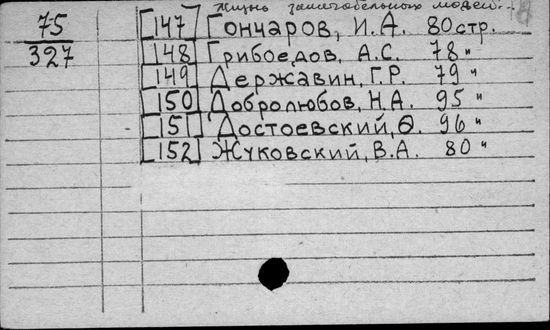 Жизнь замечательных людей...
75 [147] Гончаров, И.А. 80 стр.
327 [148] Грибоедов, А.С. 78 "
[149] Державин, Г.Р. 79 "
[150] Добролюбов, Н.А. 95 "
[151] Достоевский, Ѳ. 96 "
[152] Жуковский, В.А. 80 "